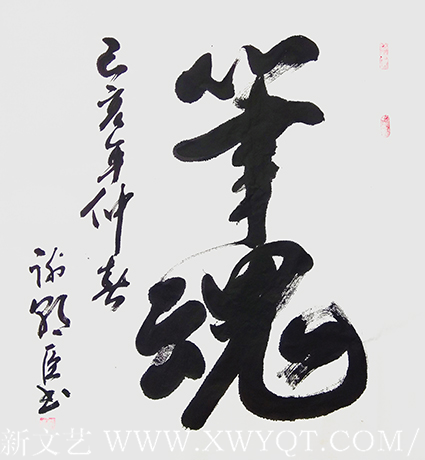 筆魂
己亥年仲春
谢朝臣书
新文艺 WWW.XWYQT.COM/